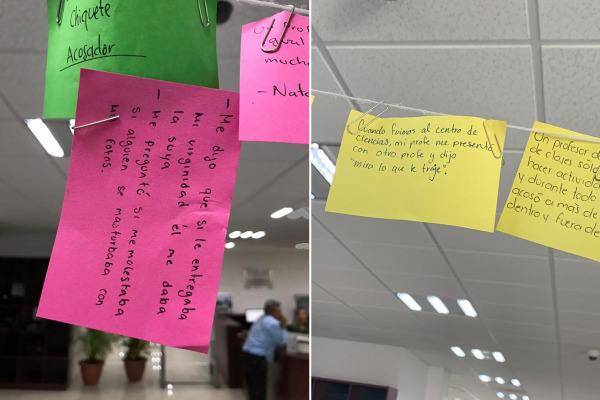 Chiquete
Acosador
- Me dijo que si le entregaba
mi virginidad él me daba
la suya
- Me preguntó si me molestaba
si alguien se masturbaba con
fotos.
mucho
- Nata
Cuando fuimos al centro de
ciencias, mi profe me presentó
con otro profe y dijo
"mira lo que te traje".
Un profesor d
de clases sólo
hacer activida
y durante todo
acosó a más de
dentro y fuera de